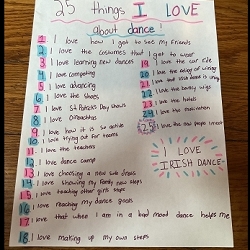 25 things I LOVE
about dance!
1. I love how I get to see my friends
2. I love the costumes that I get to wear
3. I love learning new dances
4. I love competing
5. I love advancing
6. I love the shoes
7. I love St Patrick's Day shows
8. I love Oireachtas
9. I love how it is so active
10. I love trying out for teams
11. I love the teachers
12. I love dance camp
13. I love choosing a new solo dress
14. I love showing my family new steps
15. I love teaching other girls steps
16. I love reaching my dance goals
17. I love that when I am in a bad mood dance helps me
18. I love making up my own steps
19. I love the car ride
20. I love the of wings
21. I love that Irish dance is unique
22. I love the curly wigs
23. I love hotels
24. I love the
25. I love the new people I meet
I LOVE
IRISH DANCE